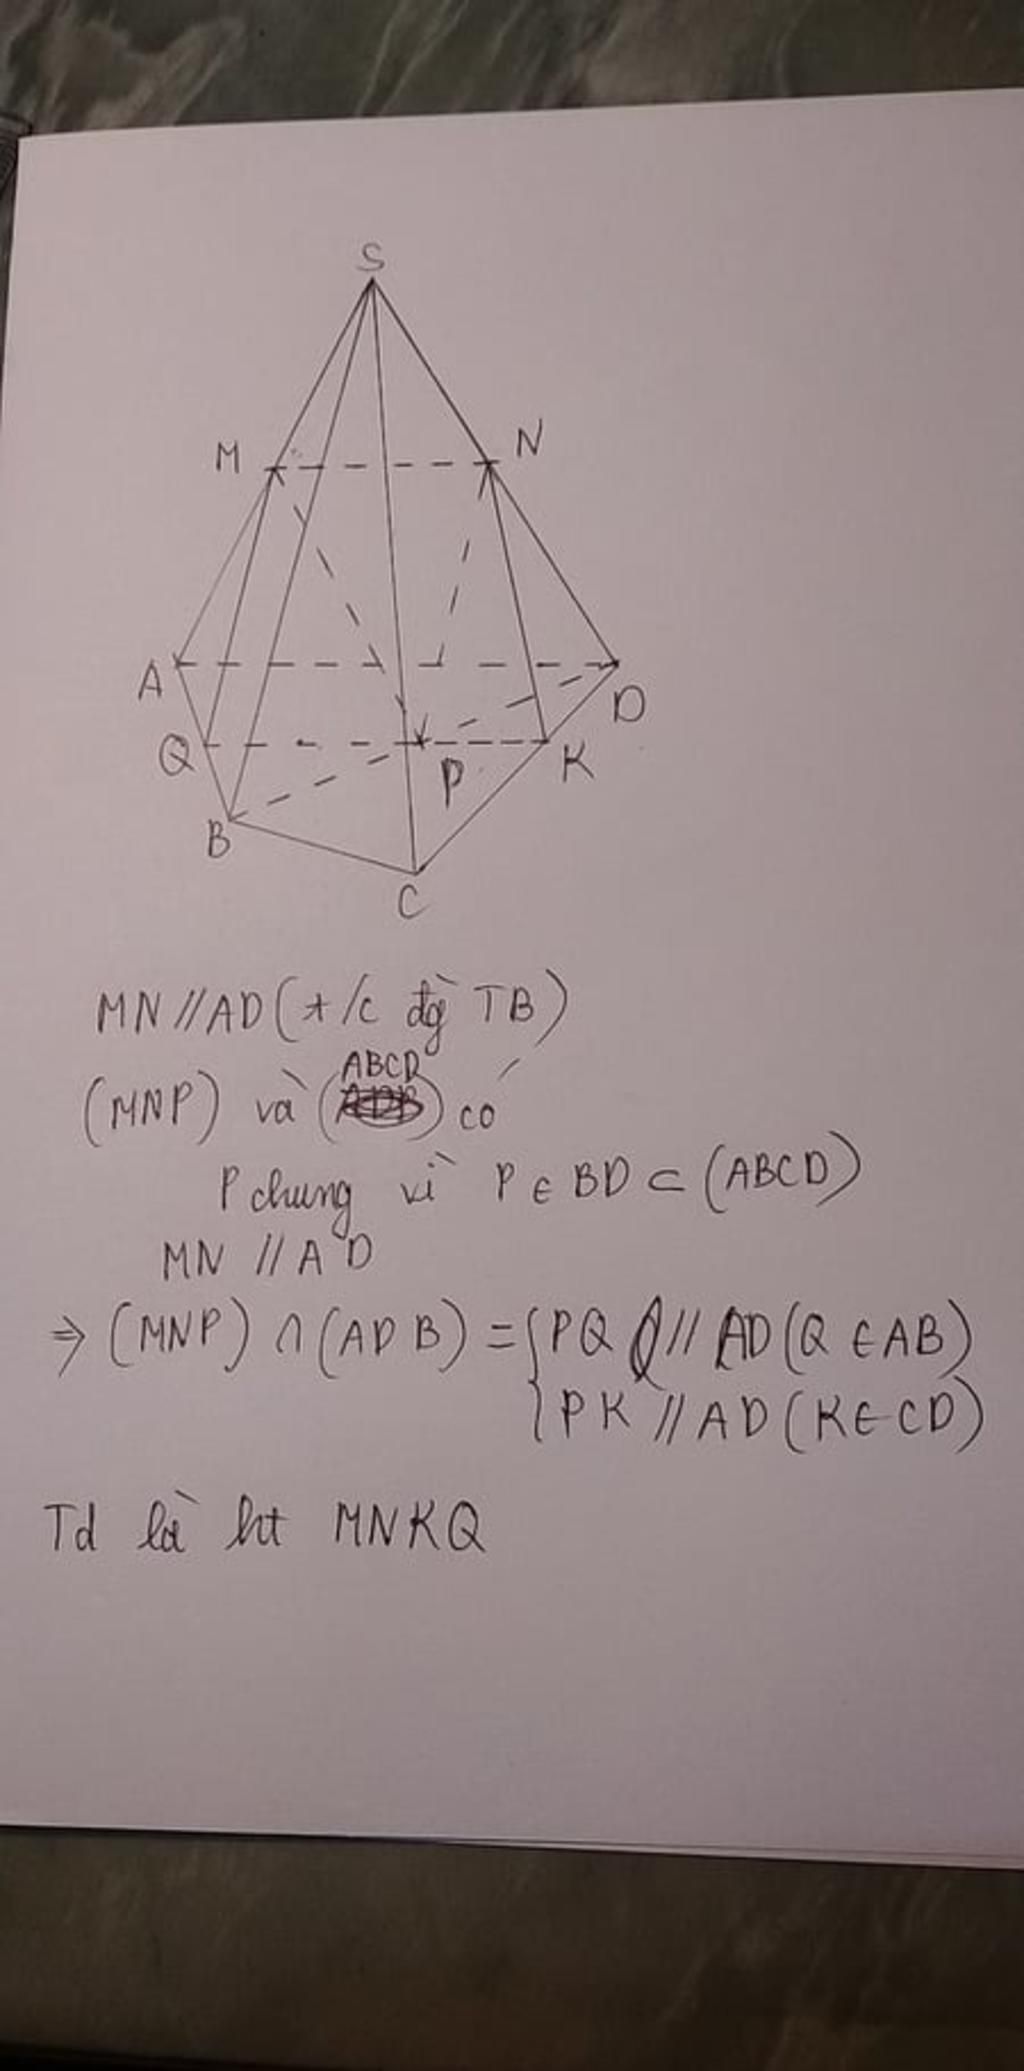 S
M N
A D
Q P K
B
C
MN // AD (t/c đg̀ TB)
(MNP) và (ABCD) có
P chung vì P ∈ BD ⊂ (ABCD)
MN // AD
⇒ (MNP) ∩ (ADB) = { PQ // AD (Q ∈ AB)
PK // AD (K ∈ CD)
Td là ht MNKQ